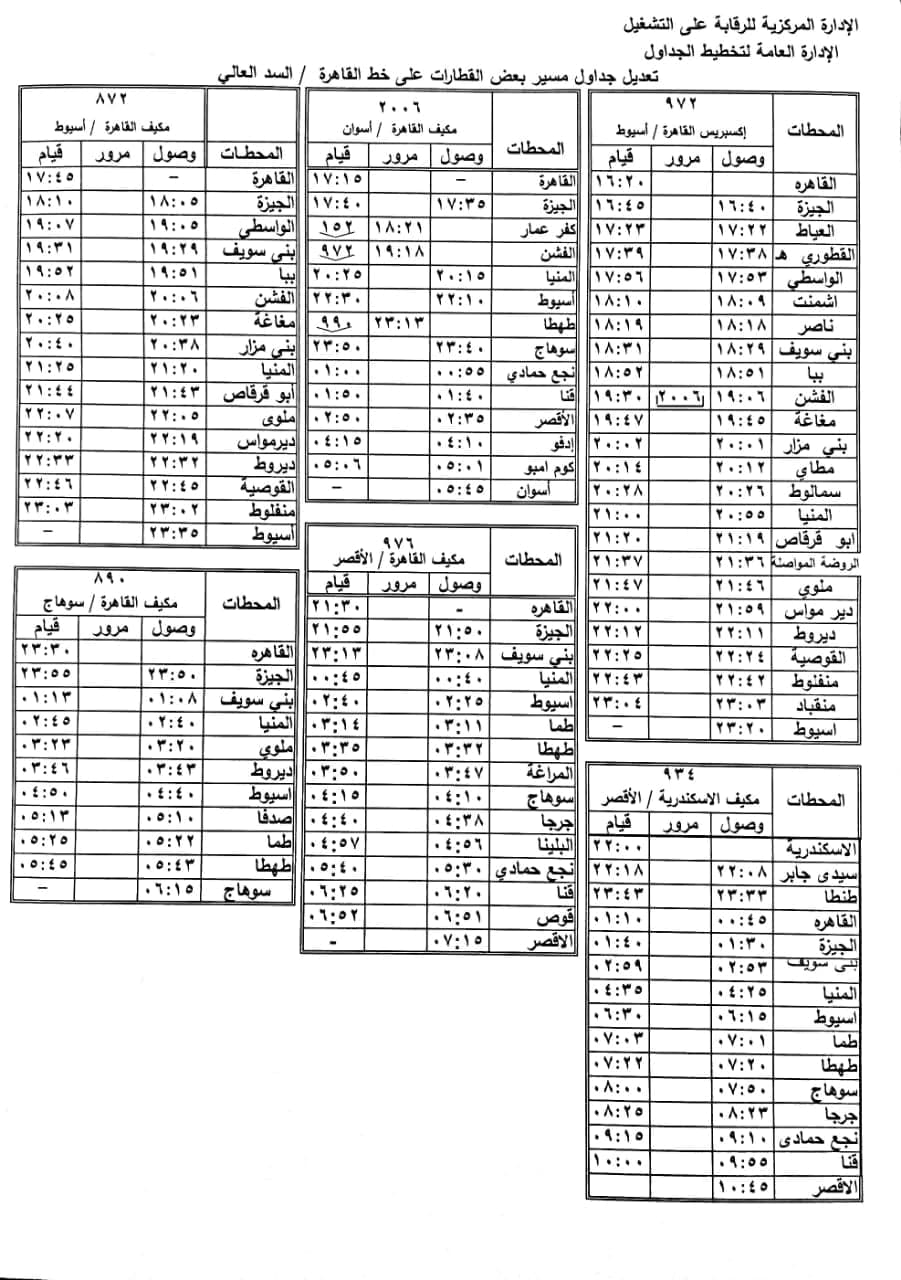 الإدارة المركزية للرقابة على التشغيل
الإدارة العامة لتخطيط الجداول
تعديل جداول مسير بعض القطارات على خط القاهرة / السد العالي
المحطات ٩٧٢
إكسبريس القاهرة / أسيوط
وصول مرور قيام
القاهره ١٦:٢٠
الجيزة ١٦:٤٠ ١٦:٤٥
العياط ١٧:٢٢ ١٧:٢٣
القطوري هـ ١٧:٣٨ ١٧:٣٩
الواسطي ١٧:٥٣ ١٧:٥٦
اشمنت ١٨:٠٩ ١٨:١٠
ناصر ١٨:١٨ ١٨:١٩
بني سويف ١٨:٢٩ ١٨:٣١
ببا ١٨:٥١ ١٨:٥٢
الفشن ١٩:٠٦ ٢٠٠٦ ١٩:٣٠
مغاغة ١٩:٤٥ ١٩:٤٧
بني مزار ٢٠:٠١ ٢٠:٠٢
مطاي ٢٠:١٢ ٢٠:١٤
سمالوط ٢٠:٢٦ ٢٠:٢٨
المنيا ٢٠:٥٥ ٢١:٠٠
ابو قرقاص ٢١:١٩ ٢١:٢٠
الروضة المواصلة ٢١:٣٦ ٢١:٣٧
ملوي ٢١:٤٦ ٢١:٤٧
دير مواس ٢١:٥٩ ٢٢:٠٠
ديروط ٢٢:١١ ٢٢:١٢
القوصية ٢٢:٢٤ ٢٢:٢٥
منفلوط ٢٢:٤٢ ٢٢:٤٣
منقباد ٢٣:٠٣ ٢٣:٠٤
اسيوط ٢٣:٢٠ –
المحطات ٩٣٤
مكيف الاسكندرية / الأقصر
وصول مرور قيام
الاسكندرية ٢٢:٠٠
سيدى جابر ٢٢:٠٨ ٢٢:١٨
طنطا ٢٣:٣٣ ٢٣:٤٣
القاهره ٠٠:٤٥ ٠١:١٠
الجيزة ٠١:٣٠ ٠١:٤٠
بنى سويف ٠٢:٥٣ ٠٢:٥٩
المنيا ٠٤:٢٥ ٠٤:٣٥
اسيوط ٠٦:١٥ ٠٦:٣٠
طما ٠٧:٠١ ٠٧:٠٣
طهطا ٠٧:٢٠ ٠٧:٢٢
سوهاج ٠٧:٥٠ ٠٨:٠٠
جرجا ٠٨:٢٣ ٠٨:٢٥
نجع حمادى ٠٩:١٠ ٠٩:١٥
قنا ٠٩:٥٥ ١٠:٠٠
الاقصر ١٠:٤٥
المحطات ٢٠٠٦
مكيف القاهرة / أسوان
وصول مرور قيام
القاهرة – ١٧:١٥
الجيزة ١٧:٣٥ ١٧:٤٠
كفر عمار ١٨:٢١ ١٥٢
الفشن ١٩:١٨ ٩٧٢
المنيا ٢٠:١٥ ٢٠:٢٥
أسيوط ٢٢:١٠ ٢٢:٣٠
طهطا ٢٣:١٣ ٩٩٠
سوهاج ٢٣:٤٠ ٢٣:٥٠
نجع حمادي ٠٠:٥٥ ٠١:٠٠
قنا ٠١:٤٠ ٠١:٥٠
الأقصر ٠٢:٣٥ ٠٢:٥٠
إدفو ٠٤:١٠ ٠٤:١٥
كوم امبو ٠٥:٠١ ٠٥:٠٦
أسوان ٠٥:٤٥ –
المحطات ٩٧٦
مكيف القاهرة / الأقصر
وصول مرور قيام
القاهره - ٢١:٣٠
الجيزة ٢١:٥٠ ٢١:٥٥
بني سويف ٢٣:٠٨ ٢٣:١٣
المنيا ٠٠:٤٠ ٠٠:٤٥
اسيوط ٠٢:٢٥ ٠٢:٤٠
طما ٠٣:١١ ٠٣:١٤
طهطا ٠٣:٣٢ ٠٣:٣٥
المراغة ٠٣:٤٧ ٠٣:٥٠
سوهاج ٠٤:١٠ ٠٤:١٥
جرجا ٠٤:٣٨ ٠٤:٤٠
البلينا ٠٤:٥٦ ٠٤:٥٧
نجع حمادي ٠٥:٣٠ ٠٥:٤٠
قنا ٠٦:٢٠ ٠٦:٢٥
قوص ٠٦:٥١ ٠٦:٥٢
الاقصر ٠٧:١٥ -
المحطات ٨٧٢
مكيف القاهرة / أسيوط
وصول مرور قيام
القاهرة – ١٧:٤٥
الجيزة ١٨:٠٥ ١٨:١٠
الواسطي ١٩:٠٥ ١٩:٠٧
بني سويف ١٩:٢٩ ١٩:٣١
ببا ١٩:٥١ ١٩:٥٢
الفشن ٢٠:٠٦ ٢٠:٠٨
مغاغة ٢٠:٢٣ ٢٠:٢٥
بني مزار ٢٠:٣٨ ٢٠:٤٠
المنيا ٢١:٢٠ ٢١:٢٥
أبو قرقاص ٢١:٤٣ ٢١:٤٤
ملوى ٢٢:٠٥ ٢٢:٠٧
ديرمواس ٢٢:١٩ ٢٢:٢٠
ديروط ٢٢:٣٢ ٢٢:٣٣
القوصية ٢٢:٤٥ ٢٢:٤٦
منفلوط ٢٣:٠٢ ٢٣:٠٣
أسيوط ٢٣:٣٥ –
المحطات ٨٩٠
مكيف القاهرة / سوهاج
وصول مرور قيام
القاهره ٢٣:٣٠
الجيزة ٢٣:٥٠ ٢٣:٥٥
بني سويف ٠١:٠٨ ٠١:١٣
المنيا ٠٢:٤٠ ٠٢:٤٥
ملوي ٠٣:٢٠ ٠٣:٢٣
ديروط ٠٣:٤٣ ٠٣:٤٦
اسيوط ٠٤:٤٠ ٠٤:٥٠
صدفا ٠٥:١٠ ٠٥:١٣
طما ٠٥:٢٢ ٠٥:٢٥
طهطا ٠٥:٤٣ ٠٥:٤٥
سوهاج ٠٦:١٥ –